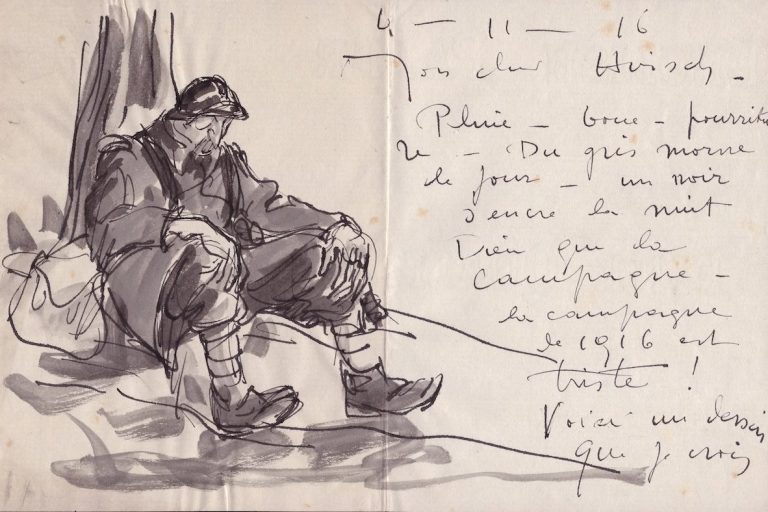 4 - 11 - 16
Mon cher Hirsch -
Pluie - boue - pourritu
re - Du gris morne
de jour - un noir
d'encre la nuit
Dieu que la
campagne -
la campagne
de 1916 est
triste !
Voici un dessin
que je crois